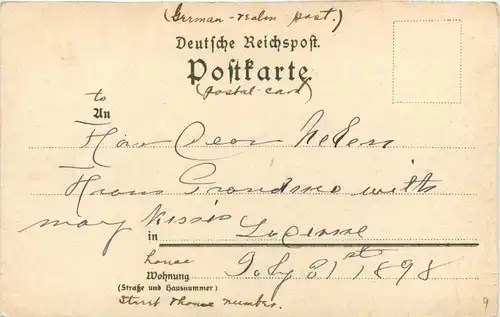 (German-realm post.)
Deutsche Reichspost.
Postkarte.
(postal-card)
to
An
For Dear Helen
From Grandma with
many kisses
in Lucerne
house
Wohnung July 31st 1898
(Straße und Hausnummer)
Street & house number.
9